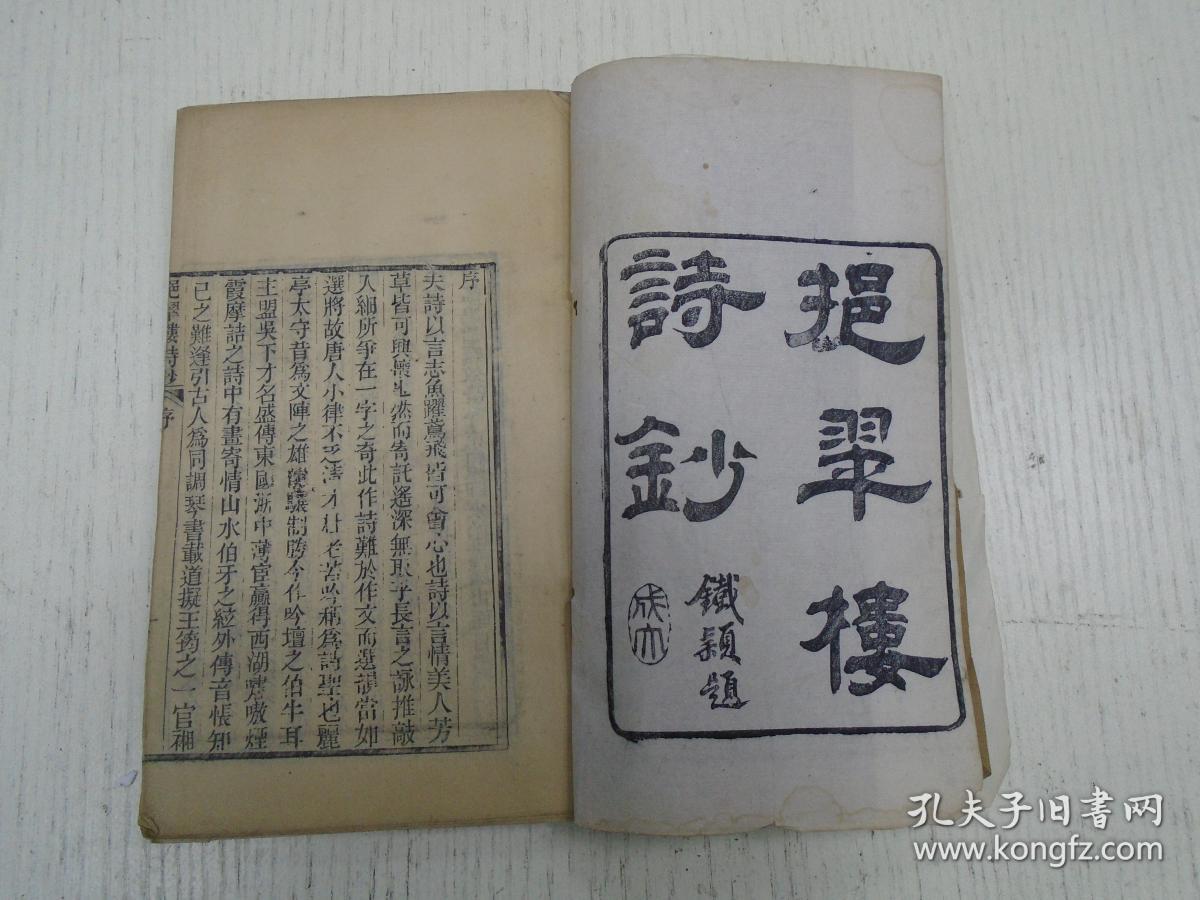 挹翠樓
詩鈔
鐵穎題
序
夫詩以言志魚躍鳶飛皆可會心也詩以言情美人芳
草皆可興懷也然而寄託遙深無取乎長言之詠推敲
入細所爭在一字之奇此作詩難於作文而選韻當如
選將故唐人小律不乏清才杜老苦吟稱爲詩聖也麗
亭太守昔爲文陣之雄驍驤制勝今作吟壇之伯牛耳
主盟吳下才名盛傳東甌浙中薄宦贏得西湖嘯嗷煙
霞摩詰之詩中有畫寄情山水伯牙之絃外傳音悵知
己之難逢引古人爲同調琴書載道擬王筠之一官裲
挹翠樓詩鈔 序
孔夫子旧书网
www.kongfz.com